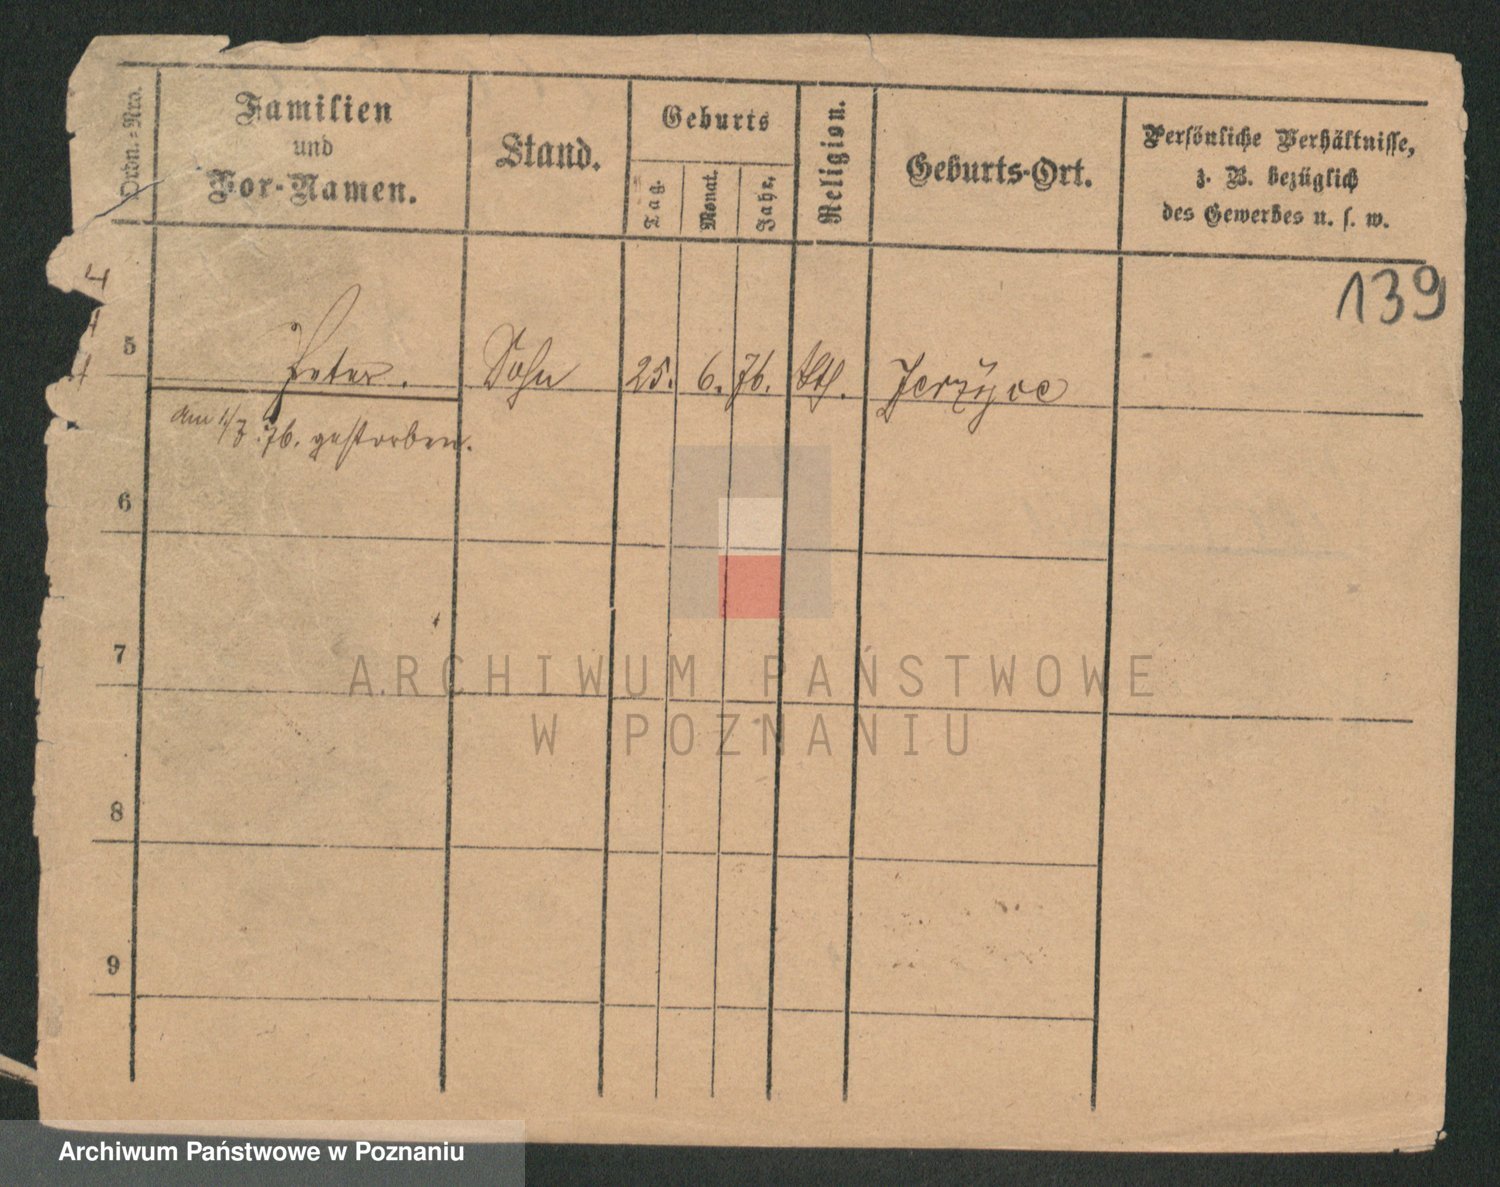 Ordn.=Nro.
Familien
und
Vor-Namen.
Stand.
Geburts
Tag.
Monat.
Jahr.
Religion.
Geburts-Ort.
Persönliche Verhältnisse,
z. B. bezüglich
des Gewerbes u. s. w.
4
139
5 Peter. Sohn 25. 6. 76. kth. Jerzyce
am 1/7. 76. gestorben.
6
7
8
9
ARCHIWUM PAŃSTWOWE
W POZNANIU
Archiwum Państwowe w Poznaniu